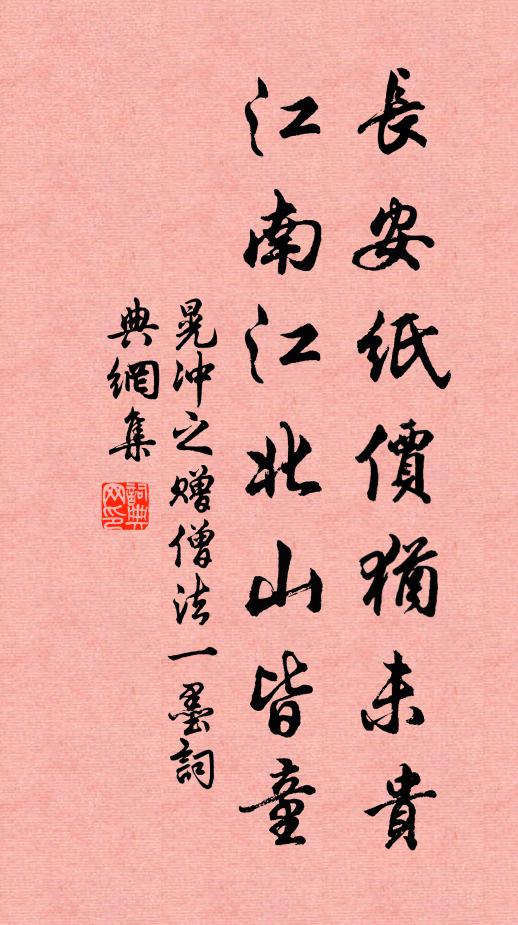 長安紙價猶未貴
江南江北山皆童
晁冲之赠僧法一墨詞
典網集
詞典
网印